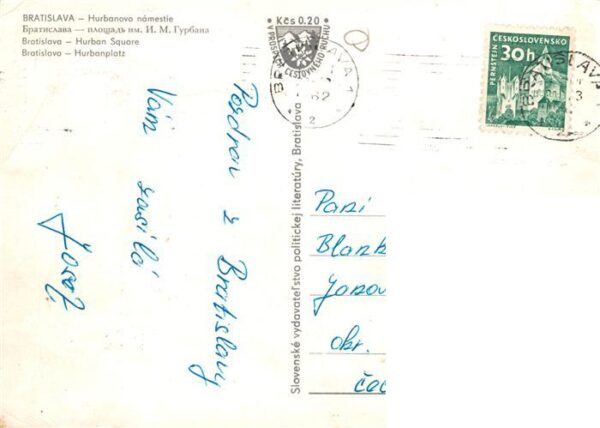 BRATISLAVA – Hurbanovo námestie
Братислава — площадь им. И. М. Гурбана
Bratislava – Hurban Square
Bratislava – Hurbanplatz
Kčs 0.20
V PROSPECH CESTOVNÉHO RUCHU
BRATISLAVA 1
62
2
ČESKOSLOVENSKO
PERNŠTEJN
30h
BRATISLAVA 1
Pozdrav z Bratislavy
Vám zasílá
Slovenské vydavateľstvo politickej literatúry, Bratislava
Paní
Blank
okr.